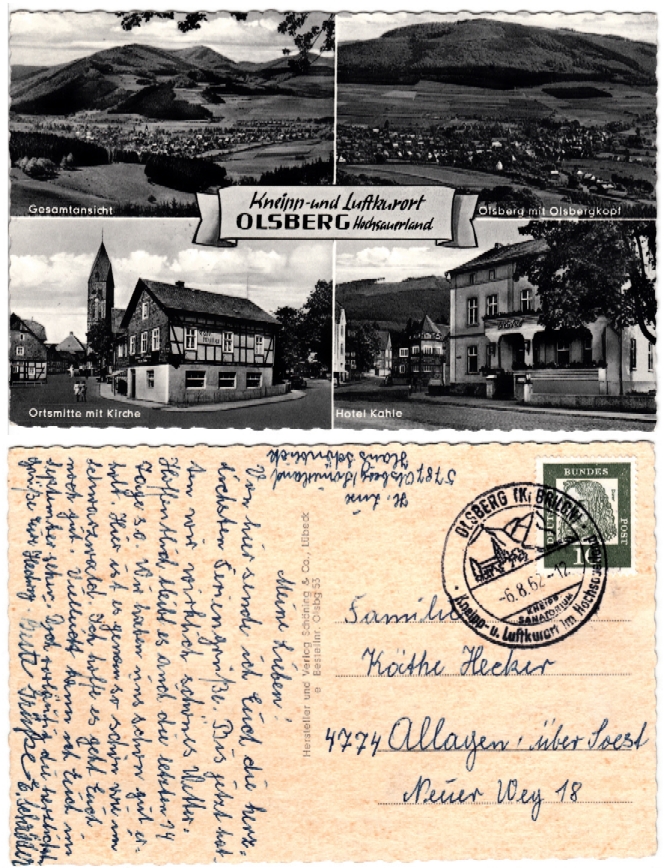 Gesamtansicht
Olsberg mit Olsbergkopf
Kneipp- und Luftkurort
OLSBERG Hochsauerland
Ortsmitte mit Kirche
Hotel Kahle
Meine Lieben!
Von hier sende ich Euch die herz-
lichsten Feriengrüße. Bis jetzt hat-
ten wir wirklich schönes Wetter.
Hoffentlich bleibt es auch die letzten 14
Tage so. Wir haben uns schon gut er-
holt. Hier ist es genau so schön wie im
Schwarzwald. Ich hoffe es geht Euch
noch gut. Vielleicht kann ich Euch im
September sehen. Und vorläufig die herzlichst
Grüße
Gute Grüße
5787 Olsberg/Sauerland
Haus Schönblick
Hersteller und Verlag Schöning & Co., Lübeck
Bestellnr. Olsbg 53
DEUTSCHE
BUNDES
POST
10
OLSBERG (Kr BRILON)
-6.8.62-12
KNEIPP
SANATORIUM
Kneipp- u. Luftkurort im Hochsauerland
Familie
Käthe Hecker
4774 Allagen, über Soest
Neuer Weg 18